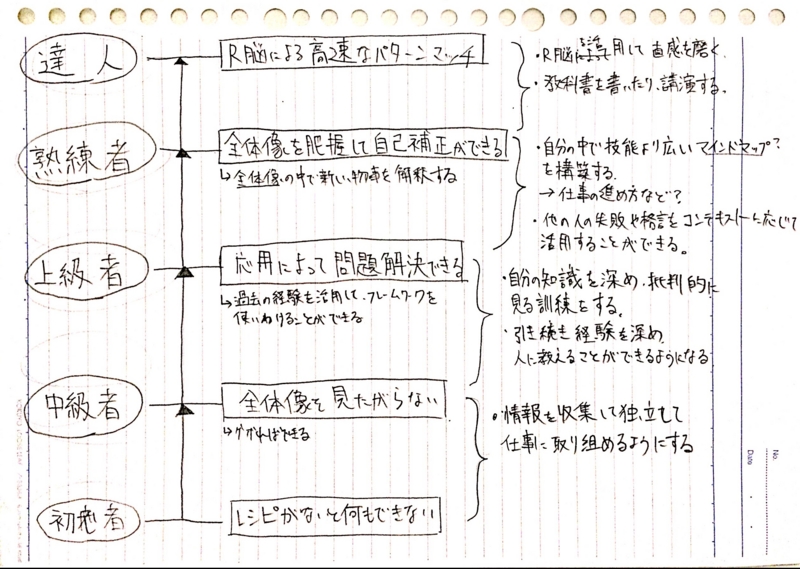 達人
R脳による高速なパターンマッチ
・R脳を活用して直感を磨く
・教科書を書いたり、講演する。
熟練者
全体像を肥握して自己補正ができる
↳全体像の中で新しい物事を解釈する
・自分の中で技能より広いマインドマップ?
を構築する。
→仕事の進め方など?
・他の人の失敗や格言をコンテキストに応じて
活用することができる。
上級者
応用によって問題解決できる
↳過去の経験を活用して、フレームワークを
使いわけることができる
・自分の知識を深め、批判的に
見る訓練をする。
・引き続き経験を深め、
人に教えることができるようになる
中級者
全体像を見たがらない
↳ググればできる
・情報を収集して独立して
仕事に取り組めるようにする
初心者
レシピがないと何もできない
No.
Date